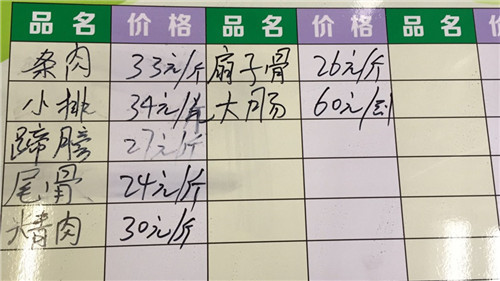 品名 价格 品名 价格 品名
条肉 33元/斤 扇子骨 26元/斤
小排 34元/斤 大肠 60元/副
蹄膀 27元/斤
尾骨 24元/斤
精肉 30元/斤